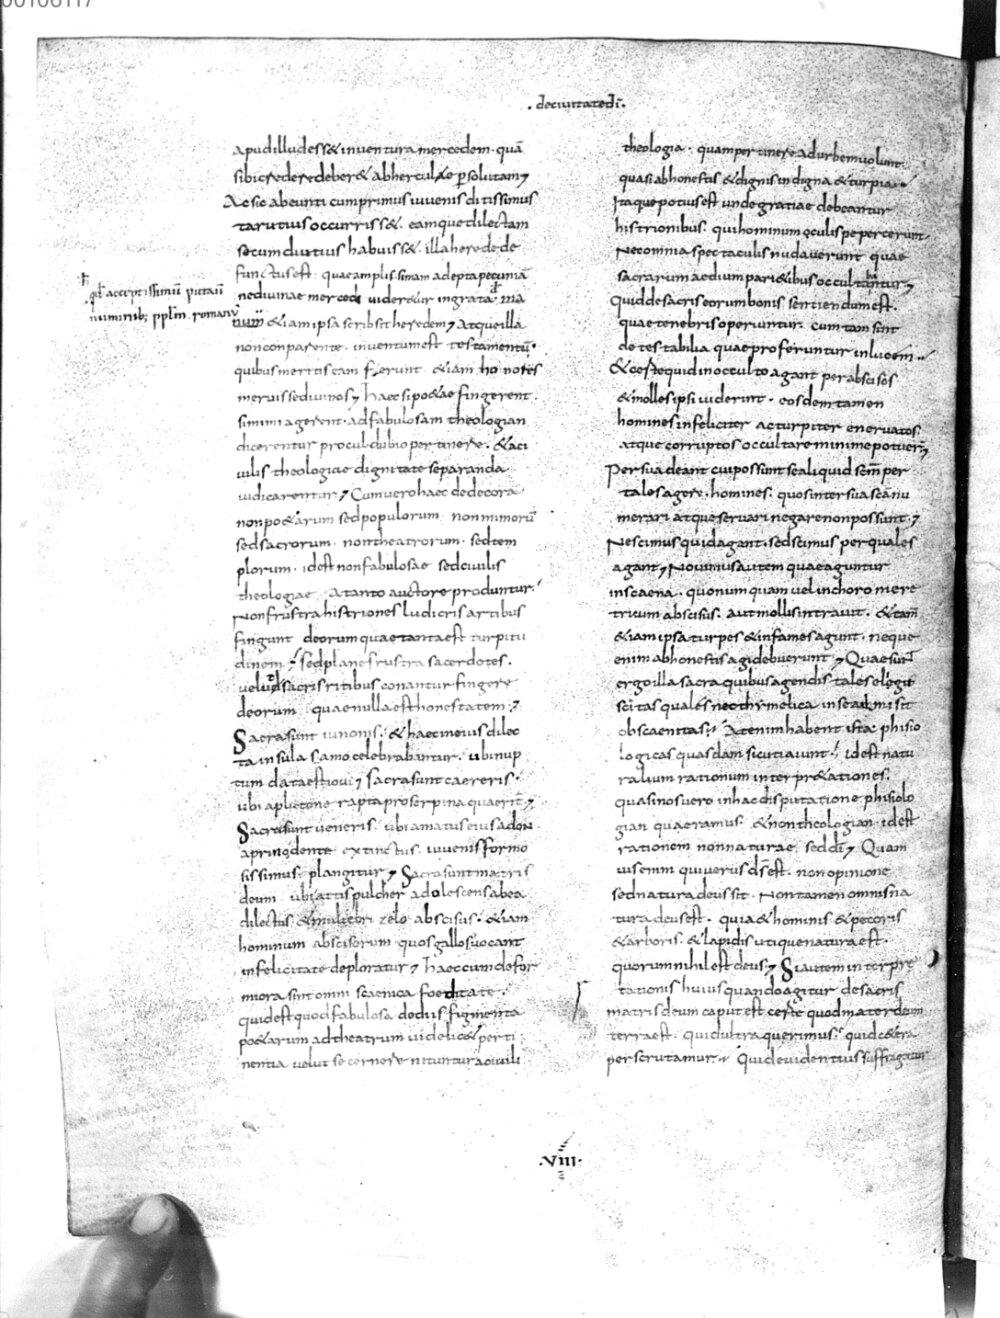 00106117
. deciuitatedī.
apudilludess& inuenturamercedem. quā
sibicrederedeber& abherculae psolutam;
Acsic abeunti cumprimus iuuenis ditissimus
tarutius occurriss&. eamquedilectam
secum diutius habuiss&. illaherede de
functusest. quaeamplissimam adeptapecuniā
nediuinae mercedi uider&ur ingrata. ma
&iam ipsa scribsit heredem; Atqueilla
nonconparente. inuentumest testamentū.
quibusmeritis eam ferunt. &iam honores
meruissediuinos; haec sipo&ae fingerent.
simimi agerent. adfabulosam theologian
dicerentur procul dubio pertinere. &aci
uilis theologiae dignitate separanda
iudicarentur; Cumuerohaec dedecora
nonpo&arum sedpopulorum. nonmimorū
sedsacrorum. nontheatrorum. sedtem
plorum. idest nonfabulosae sedciuilis
theologiae. Atanto auctore produntur.
Nonfrustra histriones ludicris artibus
fingunt deorum quaetantaest turpitu
dinem; sedplanefrustra sacerdotes.
uelud sacrisritibus conantur fingere
deorum quaenulla esthonestatem;
Sacrasunt iunonis. & haec ineius dilec
tainsula samo celebrabantur. ubinup
tum dataestioui; Sacrasunt caereris.
ubi aplutone rapta proserpina quaerit;
Sacrasunt ueneris. ubiamatus eius adon
aprinodente extinctus. iuuenisformo
sissimus. plangitur; Sacrasuntmatris
deum. ubiattis pulcher adolescens abea
dilectus. &muliebri zelo abscisus. &iam
hominum abscisorum quosgallosuocant
infelicitate deploratur; haeccumdefor
miora sintomni scaenica foeditate.
quidest quod fabulosa dediis figmenta
po&arum adtheatrum uidelic& perti
nentia uelut secernere nitunturaciuili
qđ acceptissimū putaū
numinib; pplīm. romanī
theologia. quampertinere adurbemuolunt.
quasi abhonestis &dignis indigna &turpia.
Itaquepotiusest undegratiae debeantur
histrionibus. quihominum oculis pepercerunt.
Necomnia spectaculis nudauerunt quae
sacrarum aedium pari&ibus occultantur;
Quiddesacris eorum bonis sentiendumest.
quaetenebrisoperiuntur. cum tam sint
detestabilia quaeproferuntur inlucem.
&certequid inocculto agant perabscisos
&molles ipsi uiderint. eosdem tamen
homines infeliciter acturpiter eneruatos
atque corruptos occultareminimepotuerī;
Persuadeant cuipossunt sealiquid sc̄m per
tales agere. homines. quosintersuasc̄a nu
merari atqueseruari negarenonpossunt;
Nescimusquidagant. sedscimus perquales
agant; Nouimusautem quaeaguntur
inscaena. quonumquam uelinchoro mere
tricum abscisus. autmollisintrauit. &tam̄
&iam ipsaturpes &infames agunt. neque
enim abhonestis agidebuerunt; Quaesunt
ergoilla sacra quibus agendis tales elegit
scitas quales nec thymelica insead misit
obscaenitas; Atenimhabent ista physio
logicas quasdam sicutiaiunt. idest natu
ralium rationum interpr&ationes.
quasinosuero inhac disputatione phisiolo
gian quaeramus. &nontheologian. idest
rationem nonnaturae sed dī; Quam
uisenim quiuerus d̄s est. non opinione
sednatura deus sit. Nontamen omnisna
tura deusest. quia& hominis &pecoris
&arboris. &lapidis utiquenatura est.
quorum nihil est deus; Siautem interpre
tationis huius quando agitur desacris
matris deum caput est certe quod mater deum
terra est. quid ultra querimus. quidc&era
perscrutamur. Quideuidentius suffragatur
.VIII.